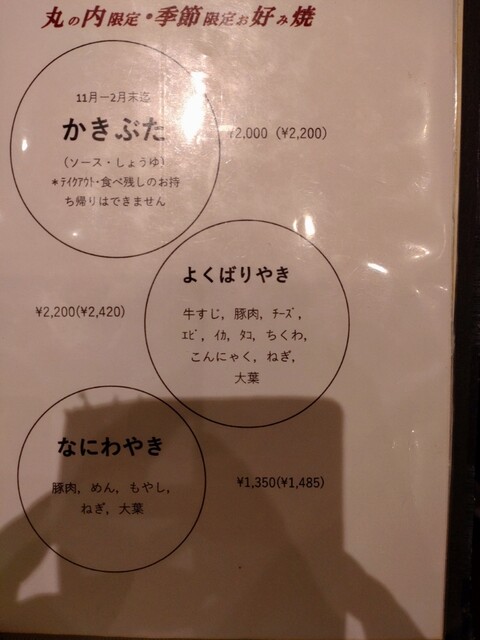 丸の内限定・季節限定お好み焼
11月ー2月末迄
かきぶた
(ソース・しょうゆ)
＊ﾃｲｸｱｳﾄ・食べ残しのお持
ち帰りはできません
¥2,000 (¥2,200)
よくばりやき
牛すじ, 豚肉, ﾁｰｽﾞ,
ｴﾋﾞ, ｲｶ, ﾀｺ, ちくわ,
こんにゃく, ねぎ,
大葉
¥2,200(¥2,420)
なにわやき
豚肉, めん, もやし,
ねぎ, 大葉
¥1,350(¥1,485)